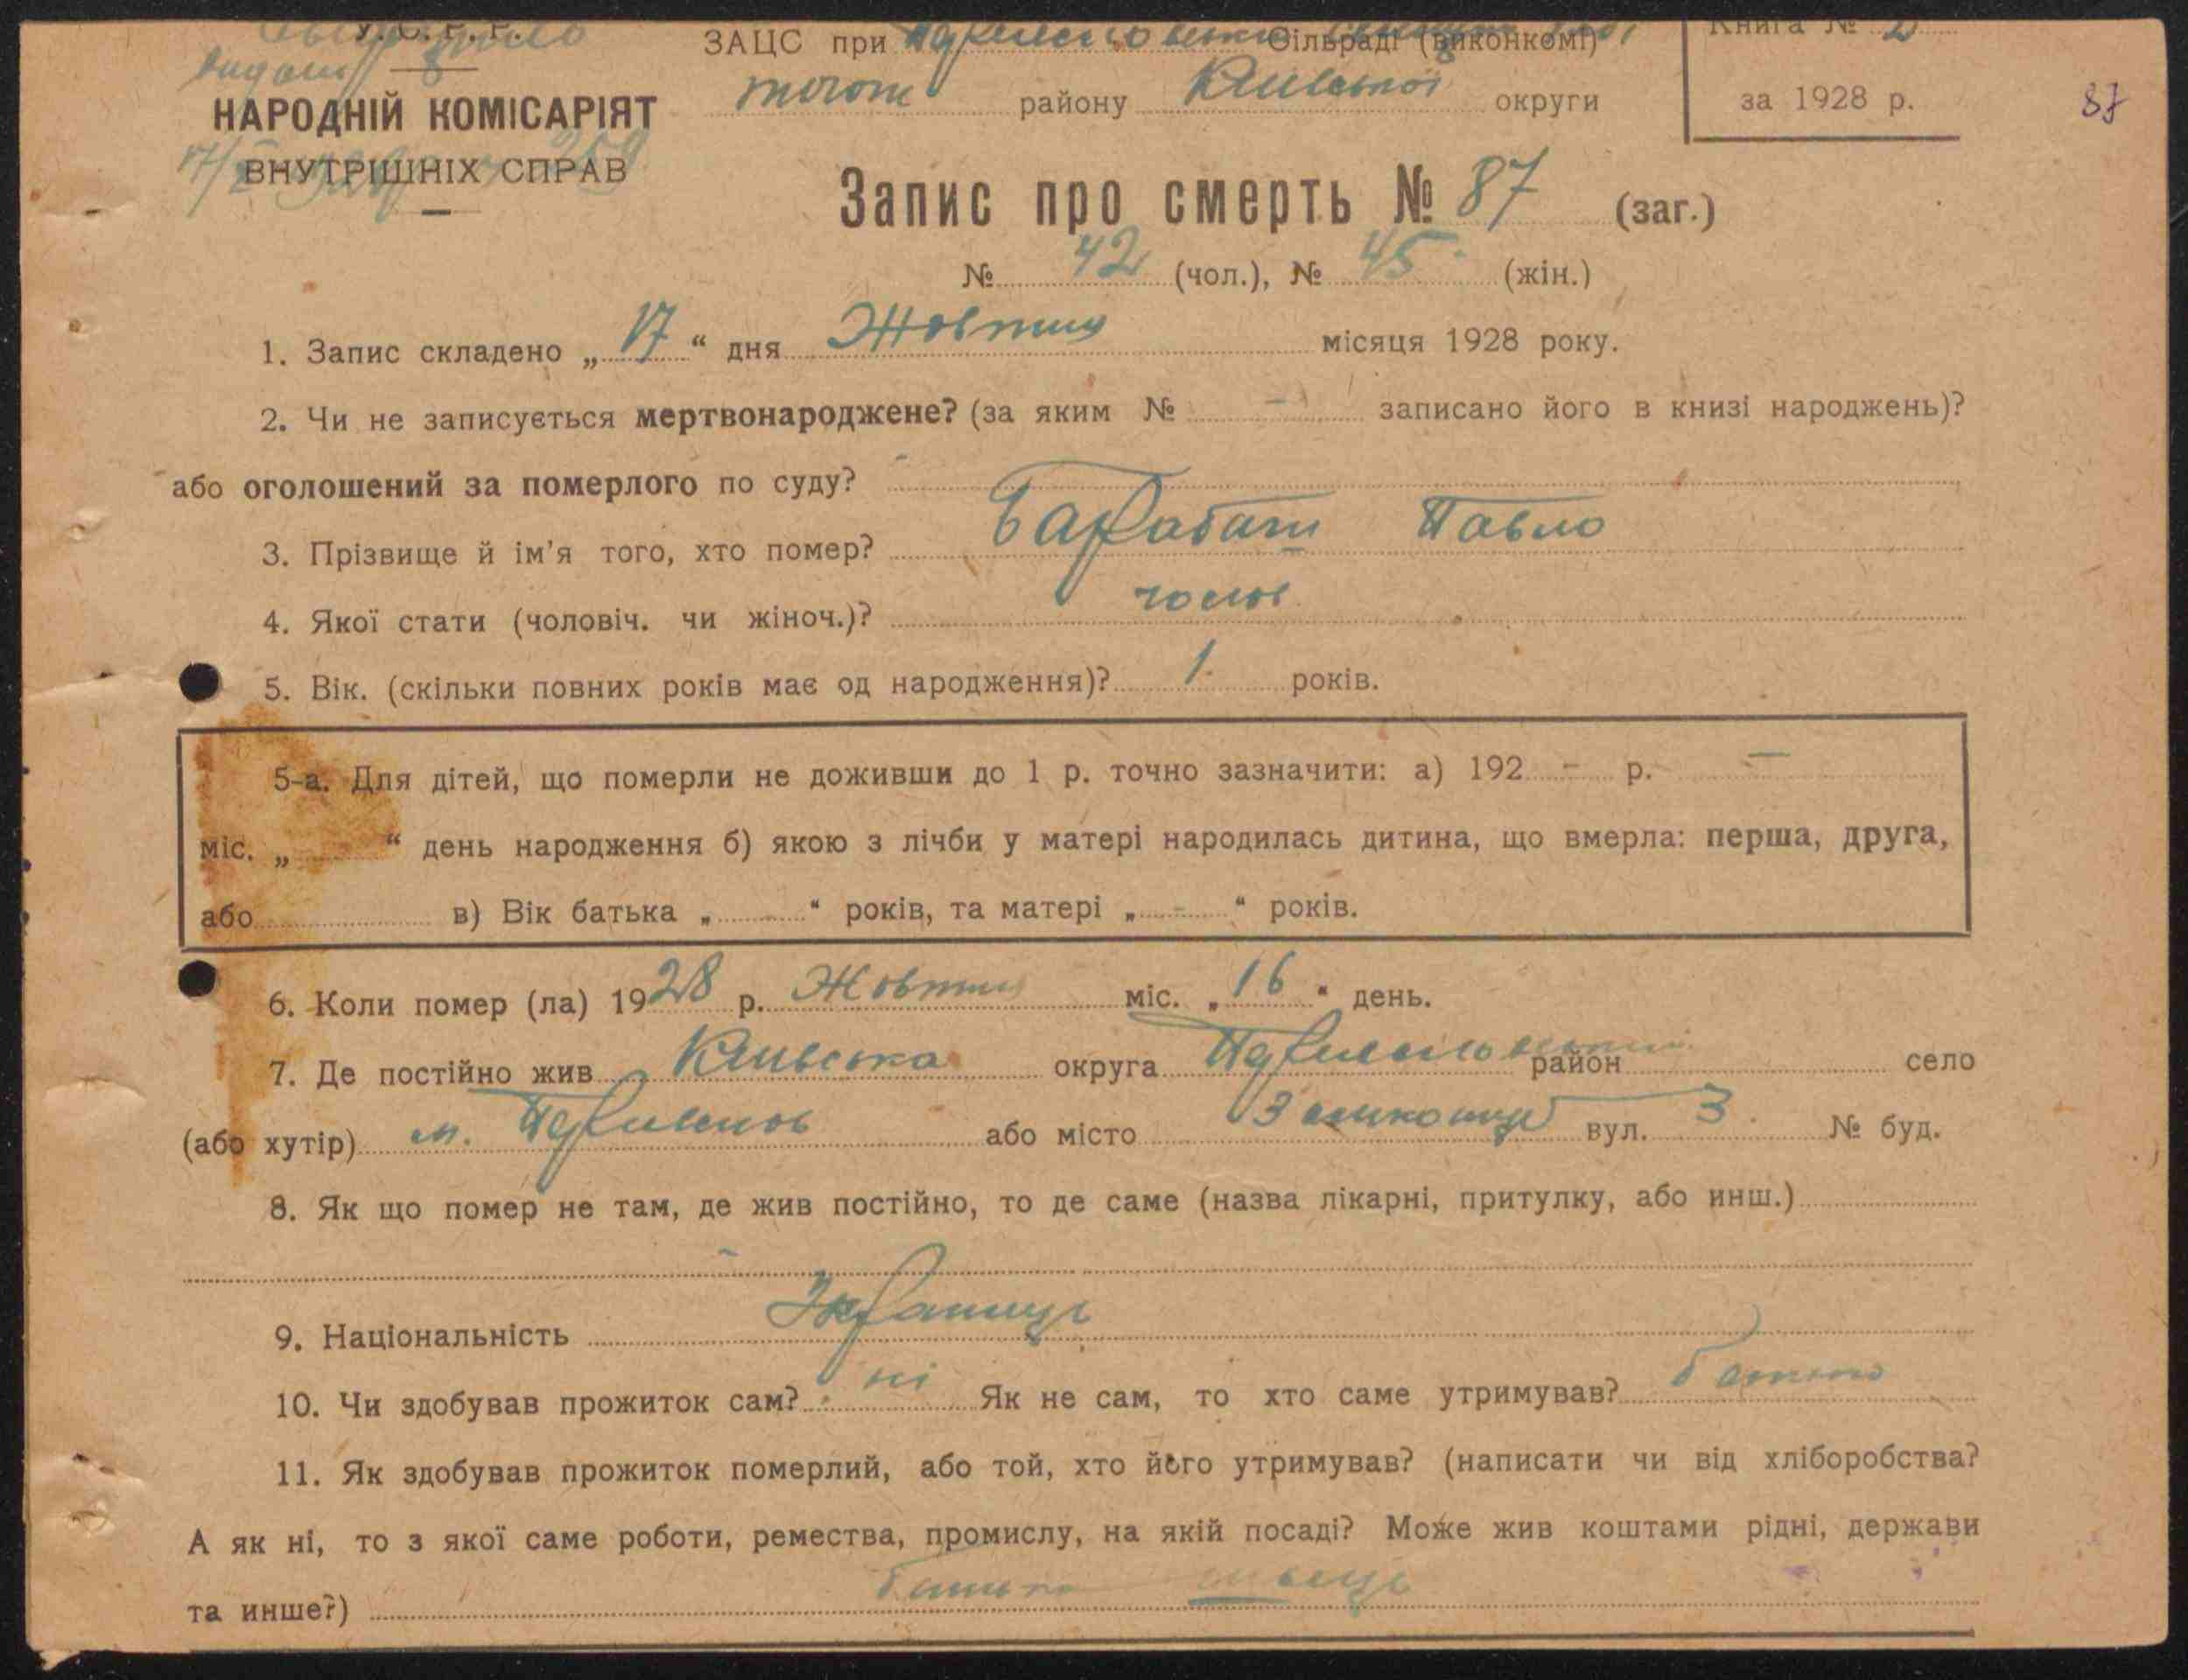 У.С.Р.Р.
НАРОДНІЙ КОМІСАРІЯТ
ВНУТРІШНІХ СПРАВ
ЗАЦС при Сільраді (виконкомі)
того ж району Київської округи
Книга № 2
за 1928 р.
87
Запис про смерть № 87 (заг.)
№ 42 (чол.), № 45 (жін.)
1. Запис складено „17“ дня Жовтня місяця 1928 року.
2. Чи не записується мертвонароджене? (за яким № - записано його в книзі народжень)?
або оголошений за померлого по суду? -
3. Прізвище й ім'я того, хто помер? Барабаш Павло
4. Якої стати (чоловіч. чи жіноч.)? чолов
5. Вік. (скільки повних років має од народження)? 1 років.
5-а. Для дітей, що померли не доживши до 1 р. точно зазначити: а) 192 - р. -
міс. „ “ день народження б) якою з лічби у матері народилась дитина, що вмерла: перша, друга,
або в) Вік батька „ - “ років, та матері „ - “ років.
6. Коли помер (ла) 1928 р. Жовтня міс. „16“ день.
7. Де постійно жив Київська округа район село
(або хутір) м. або місто вул. 3 № буд.
8. Як що помер не там, де жив постійно, то де саме (назва лікарні, притулку, або инш.)
-
9. Національність Українець
10. Чи здобував прожиток сам? ні Як не сам, то хто саме утримував? батько
11. Як здобував прожиток померлий, або той, хто його утримував? (написати чи від хліборобства?
А як ні, то з якої саме роботи, ремества, промислу, на якій посаді? Може жив коштами рідні, держави
та инше?) батько швець